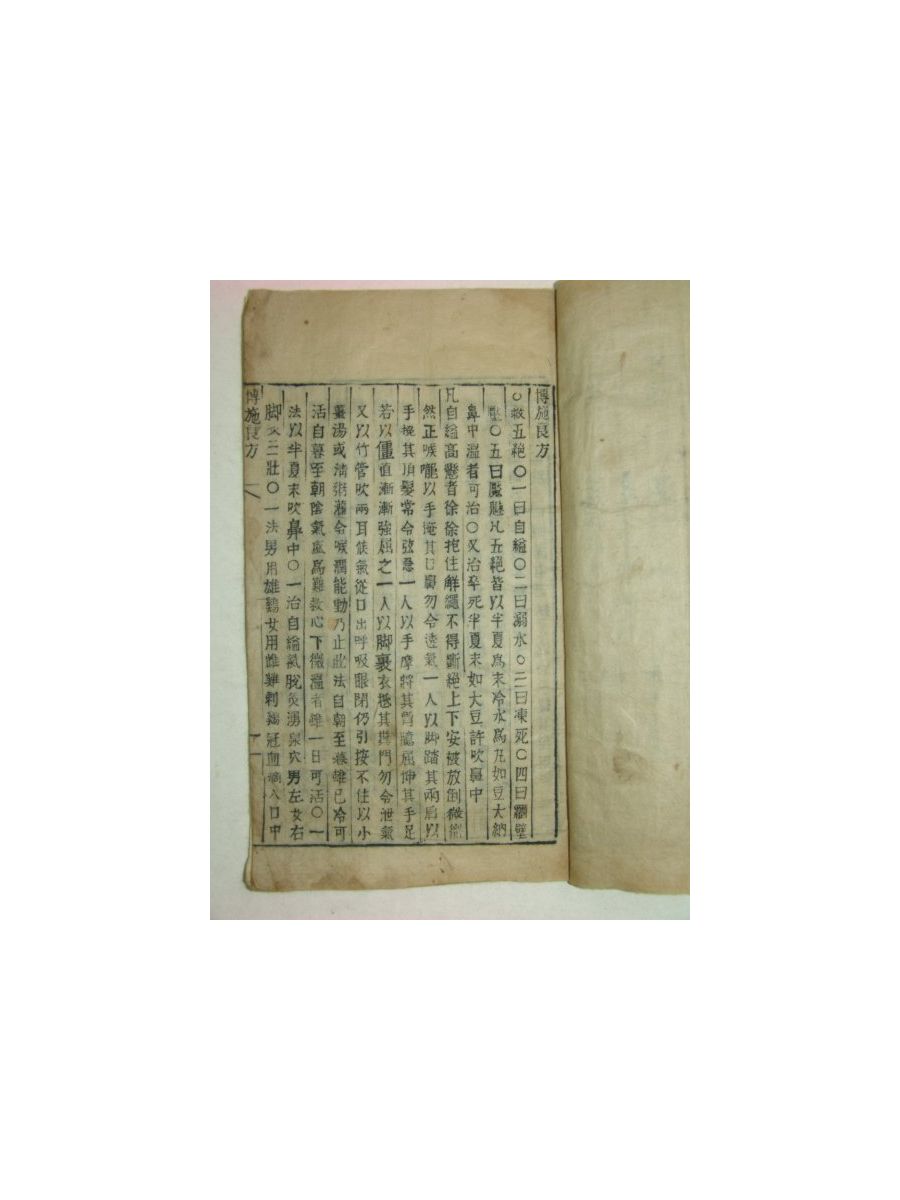 博施良方
○救五絕○一曰自縊○二曰溺水○三曰凍死○四曰
○五曰魘魅凡五絕皆以半夏爲末冷水爲丸如豆大納
鼻中溫者可治○又治卒死半夏末如大豆許吹鼻中
凡自縊高懸者徐徐抱住解繩不得斷絕上下安被放倒微
然正喉嚨以手掩其口鼻勿令透氣一人以脚踏其兩肩以
手挽其頂髮常令弦急一人以手摩將其胷臆屈伸其手足
若以僵直漸漸強屈之一人以脚裹衣 其糞門勿令泄氣
又以竹管吹兩耳候氣從口出呼吸眼開仍引按不住以小
薑湯或淸粥灌令喉潤能動乃止此法自朝至暮雖已冷可
活自暮至朝陰氣盛爲難救心下微溫者雖一日可活○一
法以半夏末吹鼻中○一治自縊氣脫灸湧泉穴男左女右
脚灸三壯○一法男用雄鷄女用雌雞刺鷄冠血滴入口中
博施良方 一